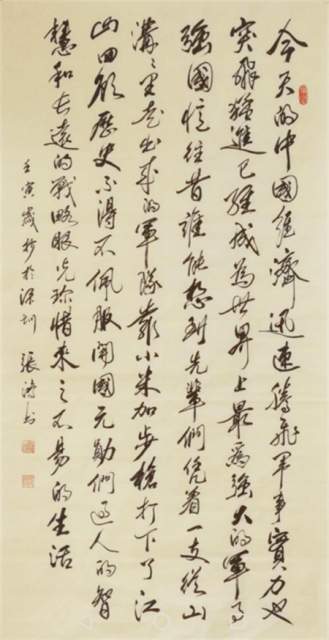 今天的中國經濟迅速騰飛軍事實力也
突飛猛進已經成為世界上最為強大的軍事
強國憶往昔誰能想到先輩們凭着一支從山
溝溝里走出來的軍隊靠小米加步槍打下了江
山回顧歷史不得不佩服開國元勛們過人的智
慧和長遠的戰略眼光珍惜來之不易的生活
壬寅歲抄於深圳 張濤书